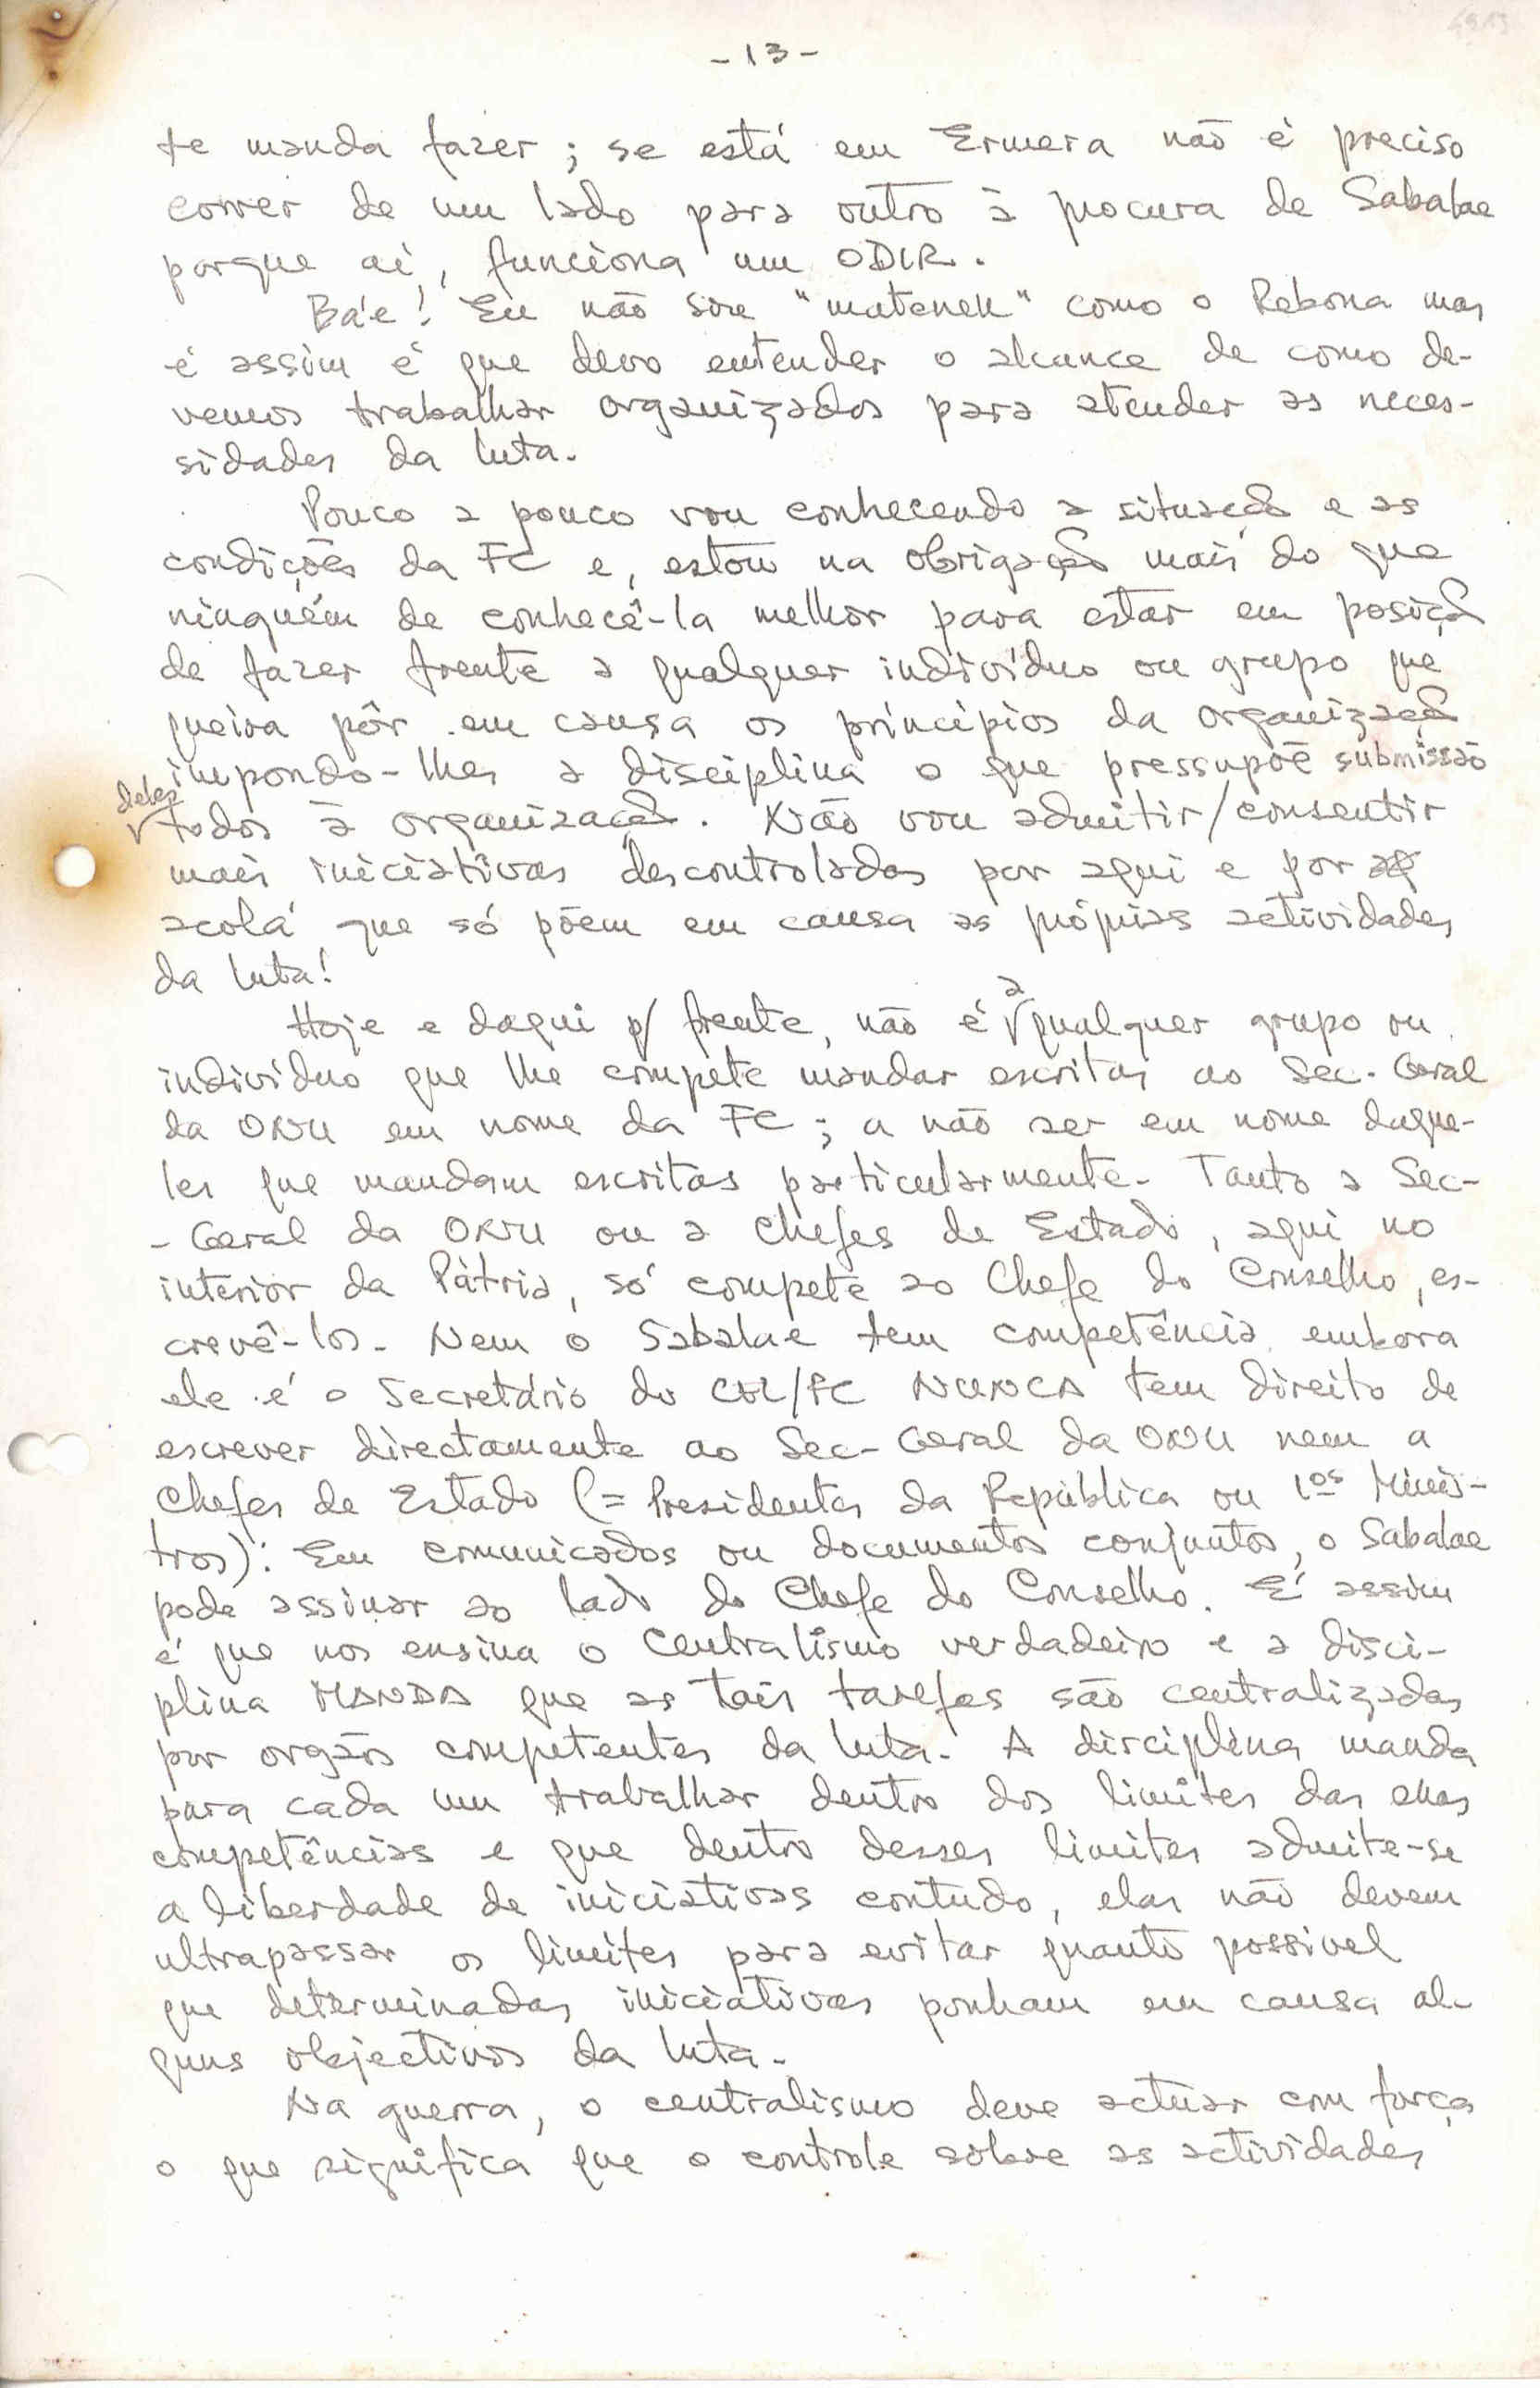 - 13 -
te manda fazer; se está em Ermera não é preciso
correr de um lado para outro à procura de Sabalae
porque aí, funciona um ODIR.
Bá'e! Eu não sou "matenek" como o Rekona mas
é assim é que devo entender o alcance de como de-
vemos trabalhar organizados para atender as neces-
sidades da luta.
Pouco a pouco vou conhecendo a situação e as
condições da FC e, estou na obrigação mais do que
ninguém de conhecê-la melhor para estar em posição
de fazer frente a qualquer indivíduo ou grupo que
queira pôr em causa os princípios da organização
impondo-lhes a disciplina o que pressupõe submissão
deles
todos à organização. Não vou admitir/consentir
mais iniciativas descontroladas por aqui e por
acolá que só põem em causa as próprias actividades
da luta!
Hoje e daqui p/ frente, não é a qualquer grupo ou
individuo que lhe compete mandar escritas ao Sec-Geral
da ONU em nome da FC; a não ser em nome daque-
les que mandam escritas particularmente. Tanto a Sec-
-Geral da ONU ou a Chefes de Estado, aqui no
interior da Pátria, só compete ao Chefe do Conselho, es-
crevê-los. Nem o Sabalae tem competência embora
ele é o Secretário do CDL/FC NUNCA tem direito de
escrever directamente ao Sec-Geral da ONU nem a
Chefes de Estado (= Presidentes da República ou 1os Minis-
tros): Em comunicados ou documentos conjuntos, o Sabalae
pode assinar ao lado do Chefe do Conselho. É assim
é que nos ensina o Centralismo verdadeiro e a disci-
plina MANDA que as tais tarefas são centralizadas
por orgãos competentes da luta. A disciplina manda
para cada um trabalhar dentro dos limites das suas
competências e que dentro desses limites admite-se
a liberdade de iniciativas contudo, elas não devem
ultrapassar os limites para evitar quanto possivel
que determinadas iniciativas ponham em causa al-
guns objectivos da luta.
Na guerra, o centralismo deve actuar com força
o que significa que o controle sobre as actividades